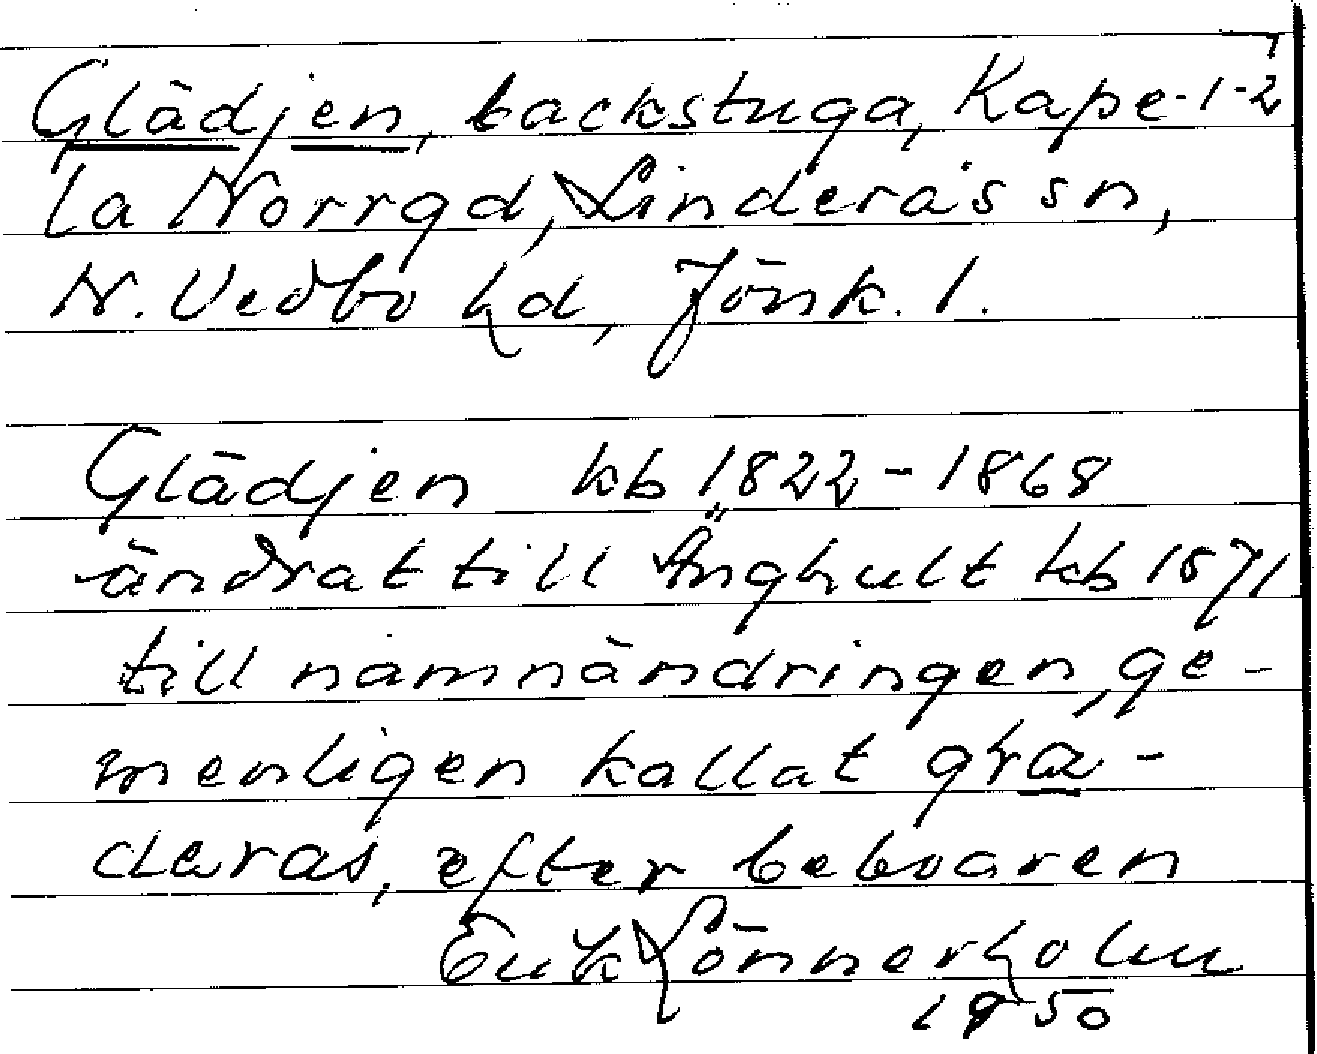 Glädjen, backstuga, Kape-1-2
la Norrgd, Linderås sn,
N. Vedbo hd, Jönk. l.
Glädjen kb 1822-1868
ändrat till Änghult kb 1871
till namnändringen, ge-
menligen kallat gra-
deras, efter beboaren
Erik Lönnerholm
1950